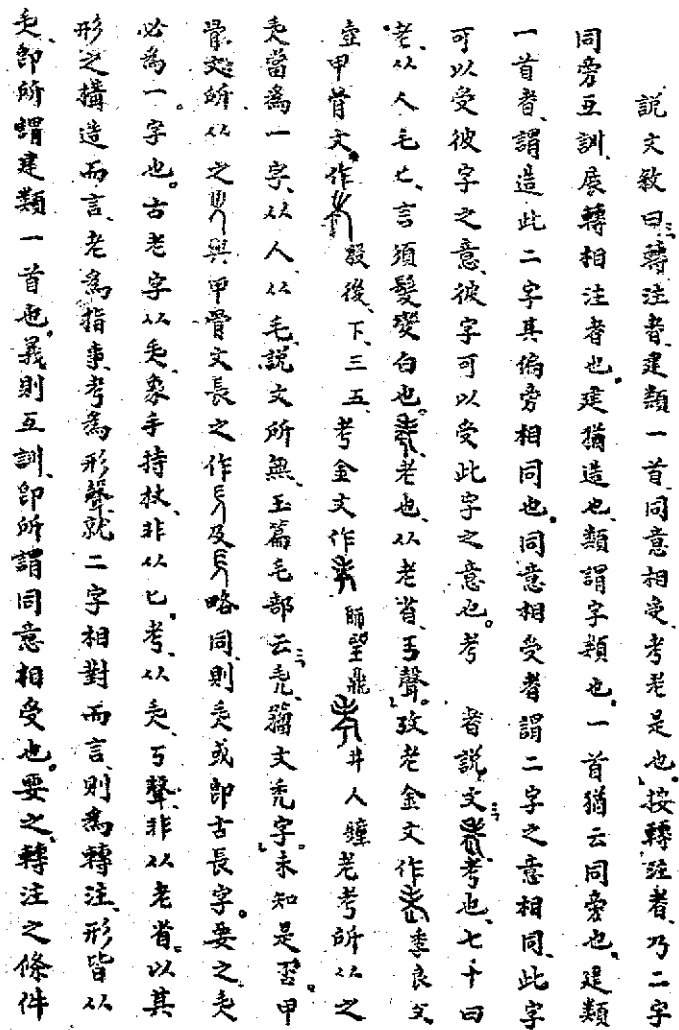 說文敘曰、轉注者、建類一首、同意相受、考老是也。按轉注者、乃二字
同旁互訓、展轉相注者也。建猶造也、類謂字類也、一首猶云同旁也、建類
一首者、謂造此二字其偏旁相同也。同意相受者謂二字之意相同、此字
可以受彼字之意、彼字可以受此字之意也。考 者說文 考也、七十曰
老、从人毛匕、言須髮變白也。 老也、从老省、丂聲。攷老金文作 季良父
壺甲骨文作 殷後、下、三五、考金文作 師望鼎 井人鐘老考所从之
耂當為一字、从人从毛、說文所無、玉篇毛部云、毛、籀文禿字。未知是否。甲
骨文所从之 與甲骨文長之作 及 略同、則耂或即古長字。要之耂
必為一字也。古老字从耂象手持杖、非从匕。考、从耂丂聲、非从老省。以其
形之構造而言、老為指事、考為形聲、就二字相對而言、則為轉注、形皆从
耂、即所謂建類一首也。義則互訓、即所謂同意相受也。要之、轉注之條件